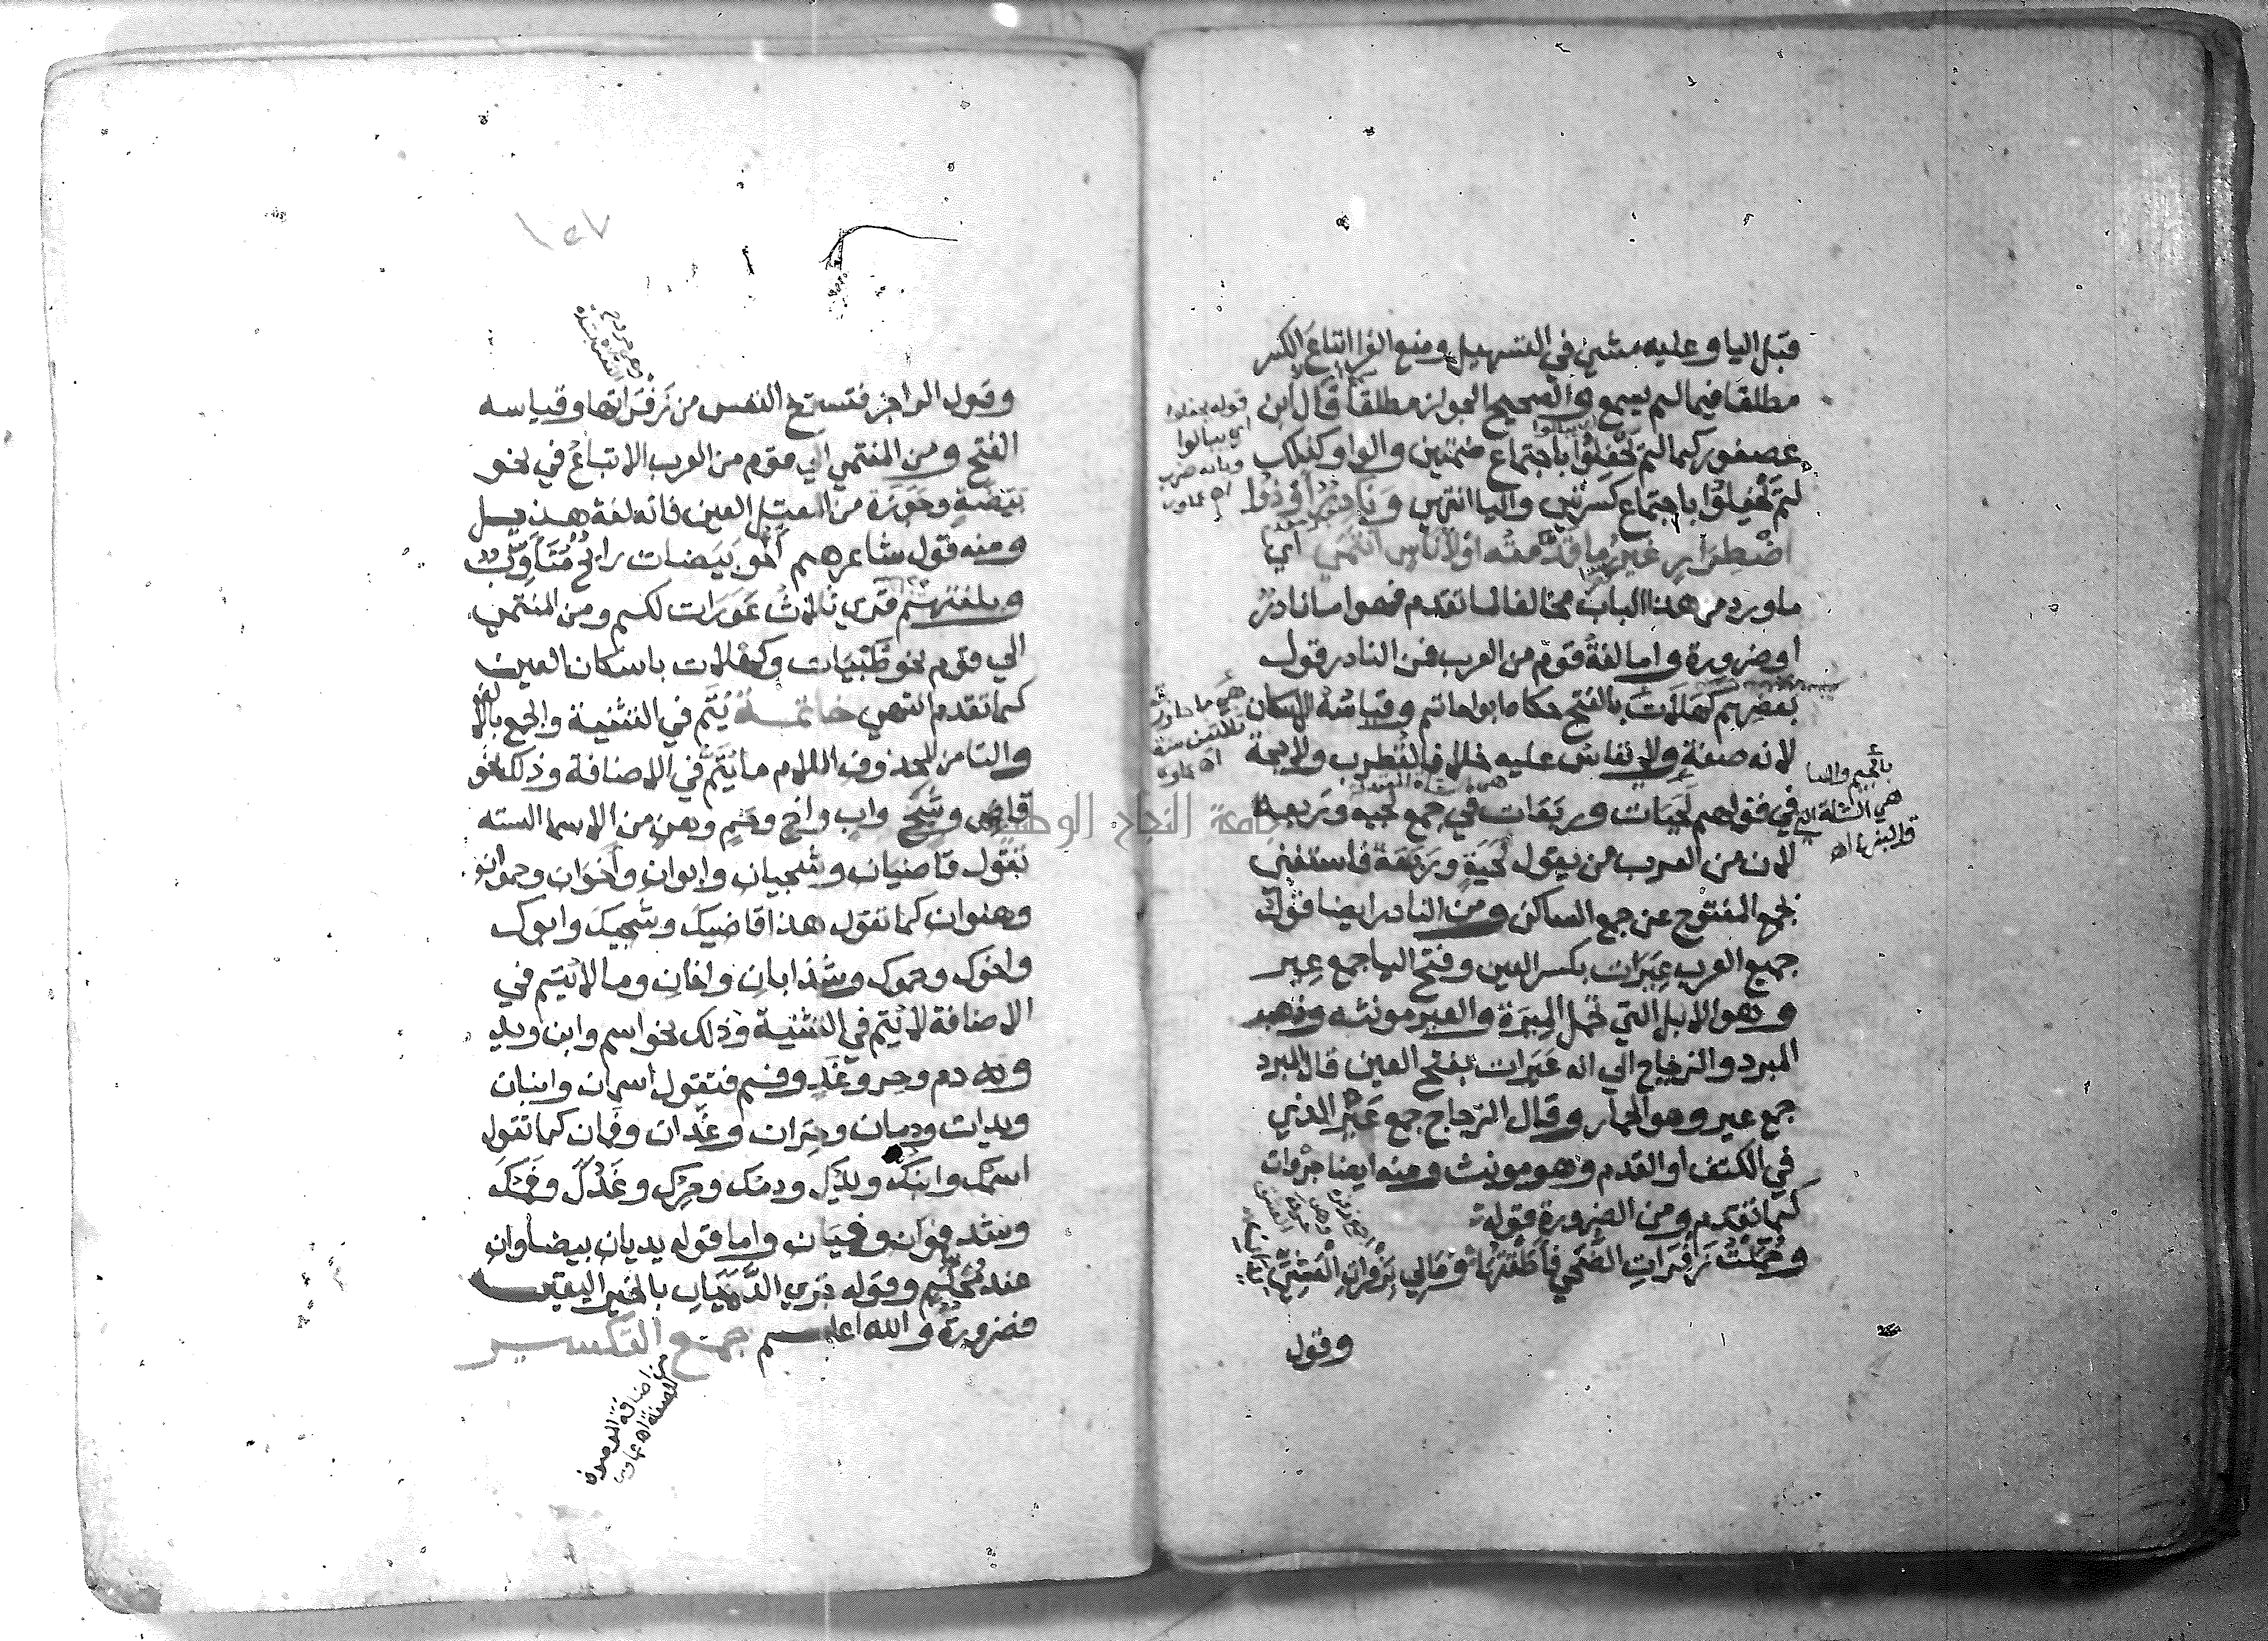 قبل اليا وعليه مشي في التسهيل ومنع الفرا اتباع الكسر
مطلقا فيما لم يسمع والصحيح الجواز مطلقا قال ابن
عصفور كما لم يحفلوا باجتماع ضمتين والواو كذلك
لم يحفلوا باجتماع كسرتين واليا انتهى وَنَادِرٌ اَوْ ذُو
اضْطِرَارٍ غَيْرُ مَا قَدَّمْتُه اوْ لِأُنَاسٍ انْتَمَى اي
ما ورد من هذا الباب مخالفا لما تقدم فهو اما نادر
او ضرورة واما لغة قوم من العرب فمن النادر قول
بعضهم كَهَلَات بالفتح حكاه ابو حاتم وقياسه الاسكان
لانه صفة ولا يقاس عليه خلافا لقطرب ولا حجة
في قولهم لَجَبَات وربَعَات في جمع لجبة وربعة
لان من العرب من يقول لَجَبَة ورَبَعَة فاستغنى
بجمع المفتوح عن جمع الساكن ومن النادر ايضا قول
جميع العرب عِيَرَات بكسر العين وفتح اليا جمع عِير
وهو الابل التي تحمل المِيرَة والعير مونثه وذهب
المبرد والزجاج الي انه عَيَرَات بفتح العين قال المبرد
جمع عير وهو الحمار وقال الزجاج جمع عَيْر الذي
في الكتف او القدم وهو مونث ومنه ايضا جروات
كما تقدم ومن الضرورة قوله
وَحُمِّلْتُ زَفْرَاتِ الضُّحَى فَأَطَقْتُهَا وَمَالِي بِزَفْرَاتِ الْعَشِيِّ يَدَانِ
وقول
قوله يحفلوا
اي يبالوا
وبابه ضرب
بالجيم والبا
هي الشاة التي
قل لبنها اه
١٥٧
وقول الراجز فتستريح النفس من زَفْرَاتها وقياسه
الفتح ومن المنتمي الي قوم من العرب الاتباع في نحو
بَيْضَةٍ وجَوْزَة من المعتل العين فانه لغة هذيل
ومنه قول شاعرهم أَخُو بَيَضات رائح مُتَأَوِّب
وبلغتهم قري ثلاث عَوَرَات لكم ومن المنتمي
الي قوم نحو ظَبْيَات وكهلات باسكان العين
كما تقدم انتهي خاتمة يُتَّم في التثنية والجمع بالالف
والتا من المحذوف اللام ما يُتَّم في الاضافة وذلك نحو
قاض وشَجٍ واب واخ وحم وهن من الاسما الستة
تقول قاضيان وشجيان وابوان وأخوان وحموان
وهنوان كما تقول هذا قاضيك وشجيك وابوك
واخوك وحموك وشذ ابان واخان وما لا يتم في
الاضافة لا يتم في التثنية وذلك نحو اسم وابن ويد
ودم وحر وغَدٍ وفم فتقول اسمان وابنان
ويدان ودمان وحِرَان وغَدان وفمان كما تقول
اسمك وابنك ويدك ودمك وحرك وغَدُكَ وفَمك
وشذ فموان وفميان واما قوله يديان بيضاوان
عند مُحَلِّم وقوله جَرَي الدَّمَيَان بالخبر اليقين
فضرورة والله اعلم جمع التكسير
من اضافة الموصوف
للصفة اه